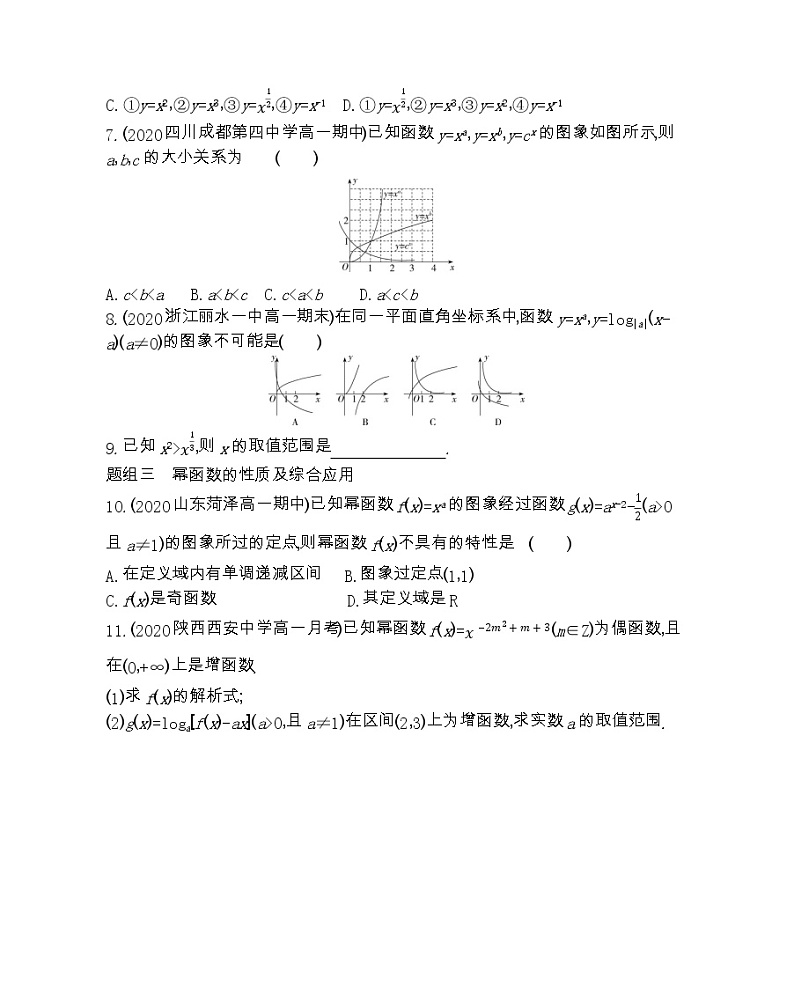 C.①y=x²,②y=x³,③y=x^{1/2},④y=x⁻¹ D.①y=x^{1/2},②y=x³,③y=x²,④y=x⁻¹
7.(2020四川成都第四中学高一期中)已知函数y=xᵃ,y=xᵇ,y=cˣ的图象如图所示,则
a,b,c的大小关系为 ( )
y
y=xᵃ
2
y=xᵇ
1
y=cˣ
O 1 2 3 4 x
A.c<b<a B.a<b<c C.c<a<b D.a<c<b
8.(2020浙江丽水一中高一期末)在同一平面直角坐标系中,函数y=xᵃ,y=log_{|a|}(x-
a)(a≠0)的图象不可能是( )
y y y y
O 1 2 x O 1 2 x O 1 2 x O 1 2 x
A B C D
9.已知x²>x^{1/3},则x的取值范围是 .
题组三 幂函数的性质及综合应用
10.(2020山东菏泽高一期中)已知幂函数f(x)=xᵃ的图象经过函数g(x)=a^{x-2}-1/2(a>0
且a≠1)的图象所过的定点,则幂函数f(x)不具有的特性是 ( )
A.在定义域内有单调递减区间 B.图象过定点(1,1)
C.f(x)是奇函数 D.其定义域是R
11.(2020陕西西安中学高一月考)已知幂函数f(x)=x^{-2m²+m+3}(m∈Z)为偶函数,且
在(0,+∞)上是增函数.
(1)求f(x)的解析式;
(2)g(x)=logₐ[f(x)-ax](a>0,且a≠1)在区间(2,3)上为增函数,求实数a的取值范围.